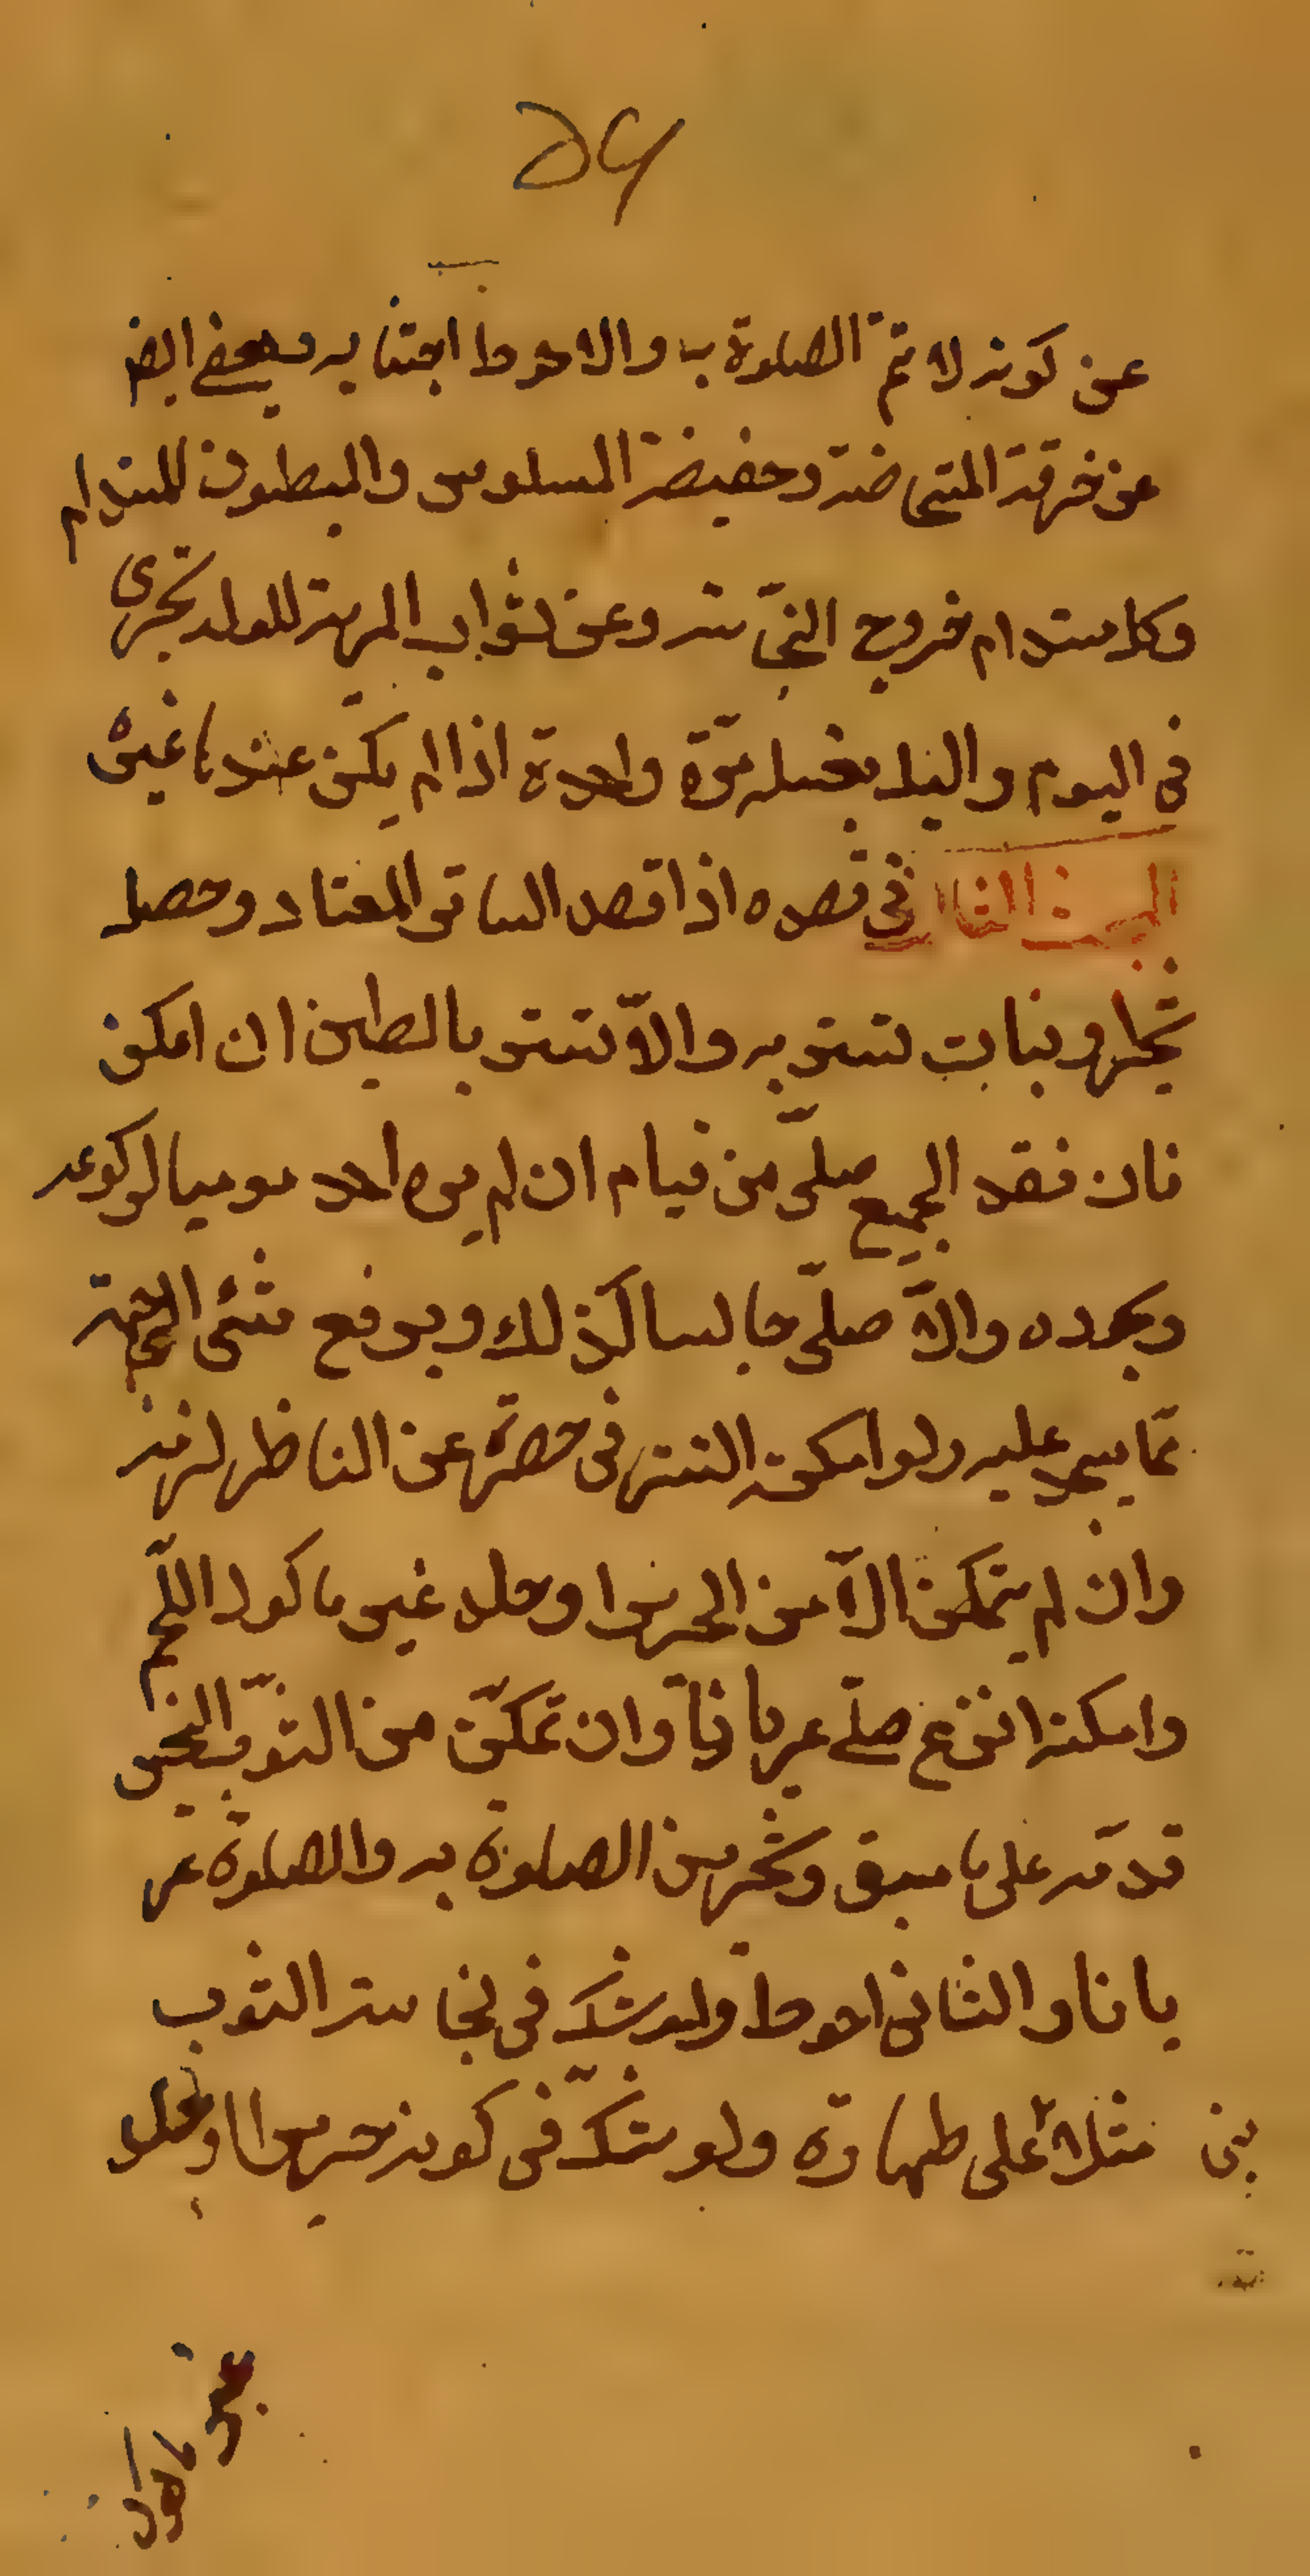 ٥٤
عن كونه لا تتم الصلوة به والاحوط اجتنابه ويعفى ايضا
عن خرقة المستحاضة وحفيضة المسلوس والمبطون للمستدام
وكل مستدام خروج النجاسة وعن ثواب المربية للولد تجزى
فى اليوم والليل بغسله مرة واحدة اذا لم يكن عندها غيره
البحث الثانى فى فقده اذا فقد الساتر المعتاد وحصل
شجرا ونبات تستر به والا تستر بالطين ان امكن
فان فقد الجميع صلى من قيام ان لم يره احد موميا لركوعه
وسجوده والا صلى جالسا كذلك ويرفع مثنى الجبهة
ما يسجد عليه ولو امكنه التستر فى حصة عن الناظر لزمه
وان لم يتمكن الا من الحرير او جلد غير ماكول اللحم
وامكنه النزع صلى عريانا وان تمكن من الثوب النجس
قدمه على ما سبق وتخير بين الصلوة به والصلوة عر
يانا والثانى احوط ولو شك فى نجاسة الثوب
بنى مثلا على طهارته ولو شك فى كونه حريرا او جلد
غير ماكول